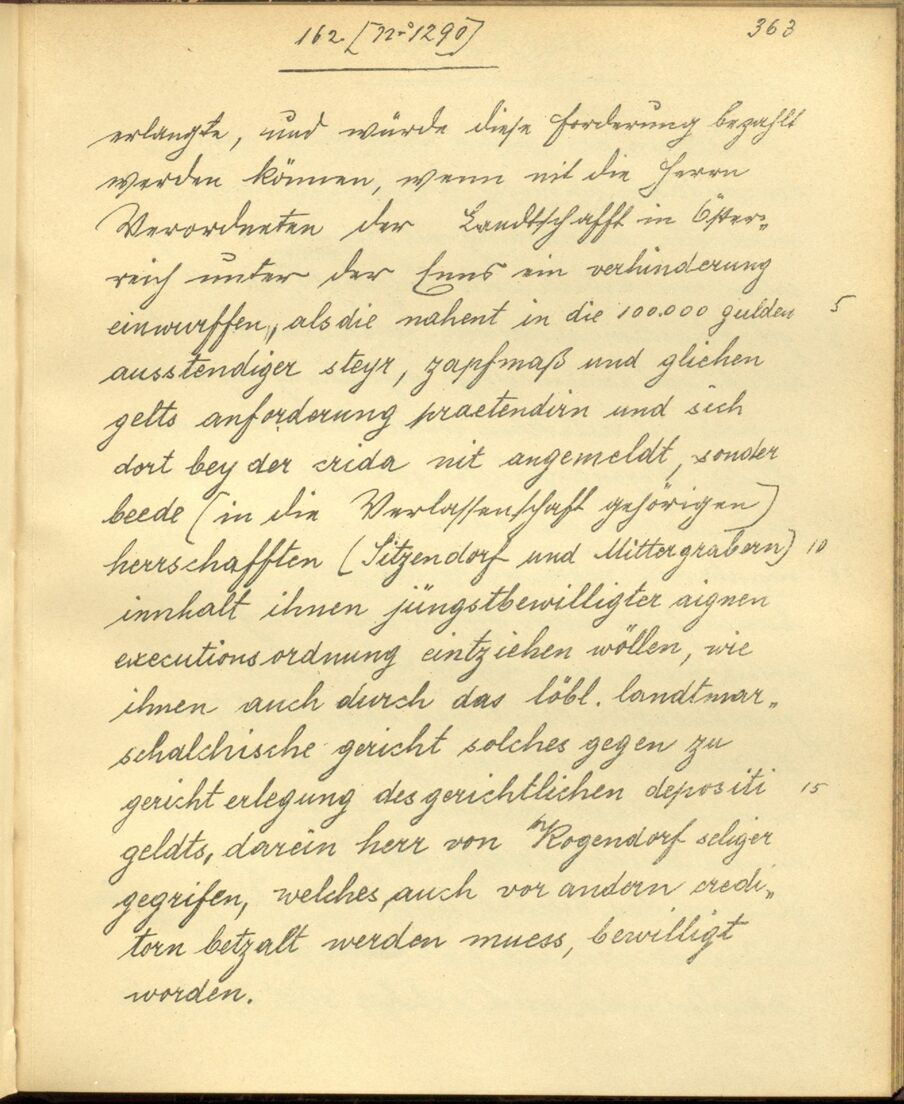 162. [N° 1290]
363
erlangte, und würde diese forderung bezahlt
werden können, wenn nit die Herrn
Verordneten der Landtschafft in Öster-
reich unter der Enns ein verhinderung
einwurffen, als die nahent in die 100.000 gulden 5
ausstendiger steyr, zapfmaß und glichen
gelts anforderung praetendirn und sich
dort bey der crida nit angemeldt, sonder
beede (in die Verlassenschaft gehörigen)
herrschafften (Sitzendorf und Mittergrabern) 10
innhalt ihnen jüngstbewilligter aignen
executionsordnung eintziehen wöllen, wie
ihnen auch durch das löbl. landtmar-
schalchische gericht solches gegen zu
gericht erlegung des gerichtlichen depositi 15
geldts, darein herr von Rogendorf seliger
gegrifen, welches auch vor andern credi-
torn betzalt werden muess, bewilligt
worden.